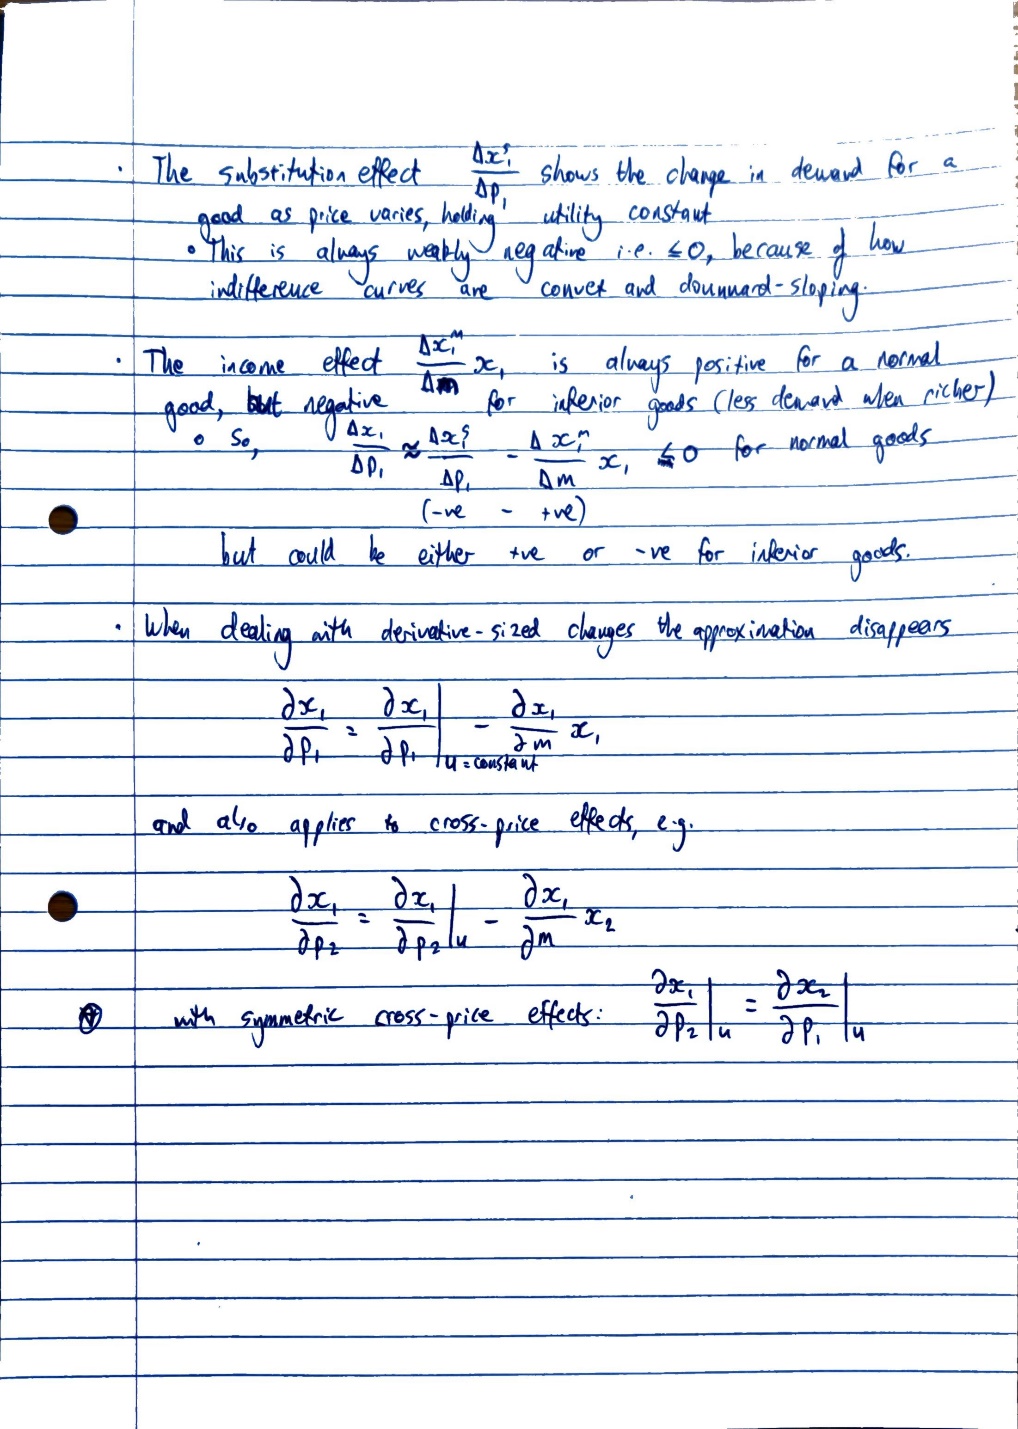 · The substitution effect Δx₁ˢ/Δp₁ shows the change in demand for a
good as price varies, holding utility constant
∘ This is always weakly negative i.e. ≤0, because of how
indifference curves are convex and downward-sloping.
· The income effect Δx₁ᵐ/Δm x₁ is always positive for a normal
good, but negative for inferior goods (less demand when richer)
∘ So, Δx₁/Δp₁ ≈ Δx₁ˢ/Δp₁ - Δx₁ᵐ/Δm x₁ ≤0 for normal goods
(-ve - +ve)
but could be either +ve or -ve for inferior goods.
· When dealing with derivative-sized changes the approximation disappears
∂x₁/∂p₁ = ∂x₁/∂p₁ |u = constant - ∂x₁/∂m x₁
and also applies to cross-price effects, e.g.
∂x₁/∂p₂ = ∂x₁/∂p₂ |u - ∂x₁/∂m x₂
with symmetric cross-price effects: ∂x₁/∂p₂ |u = ∂x₂/∂p₁ |u